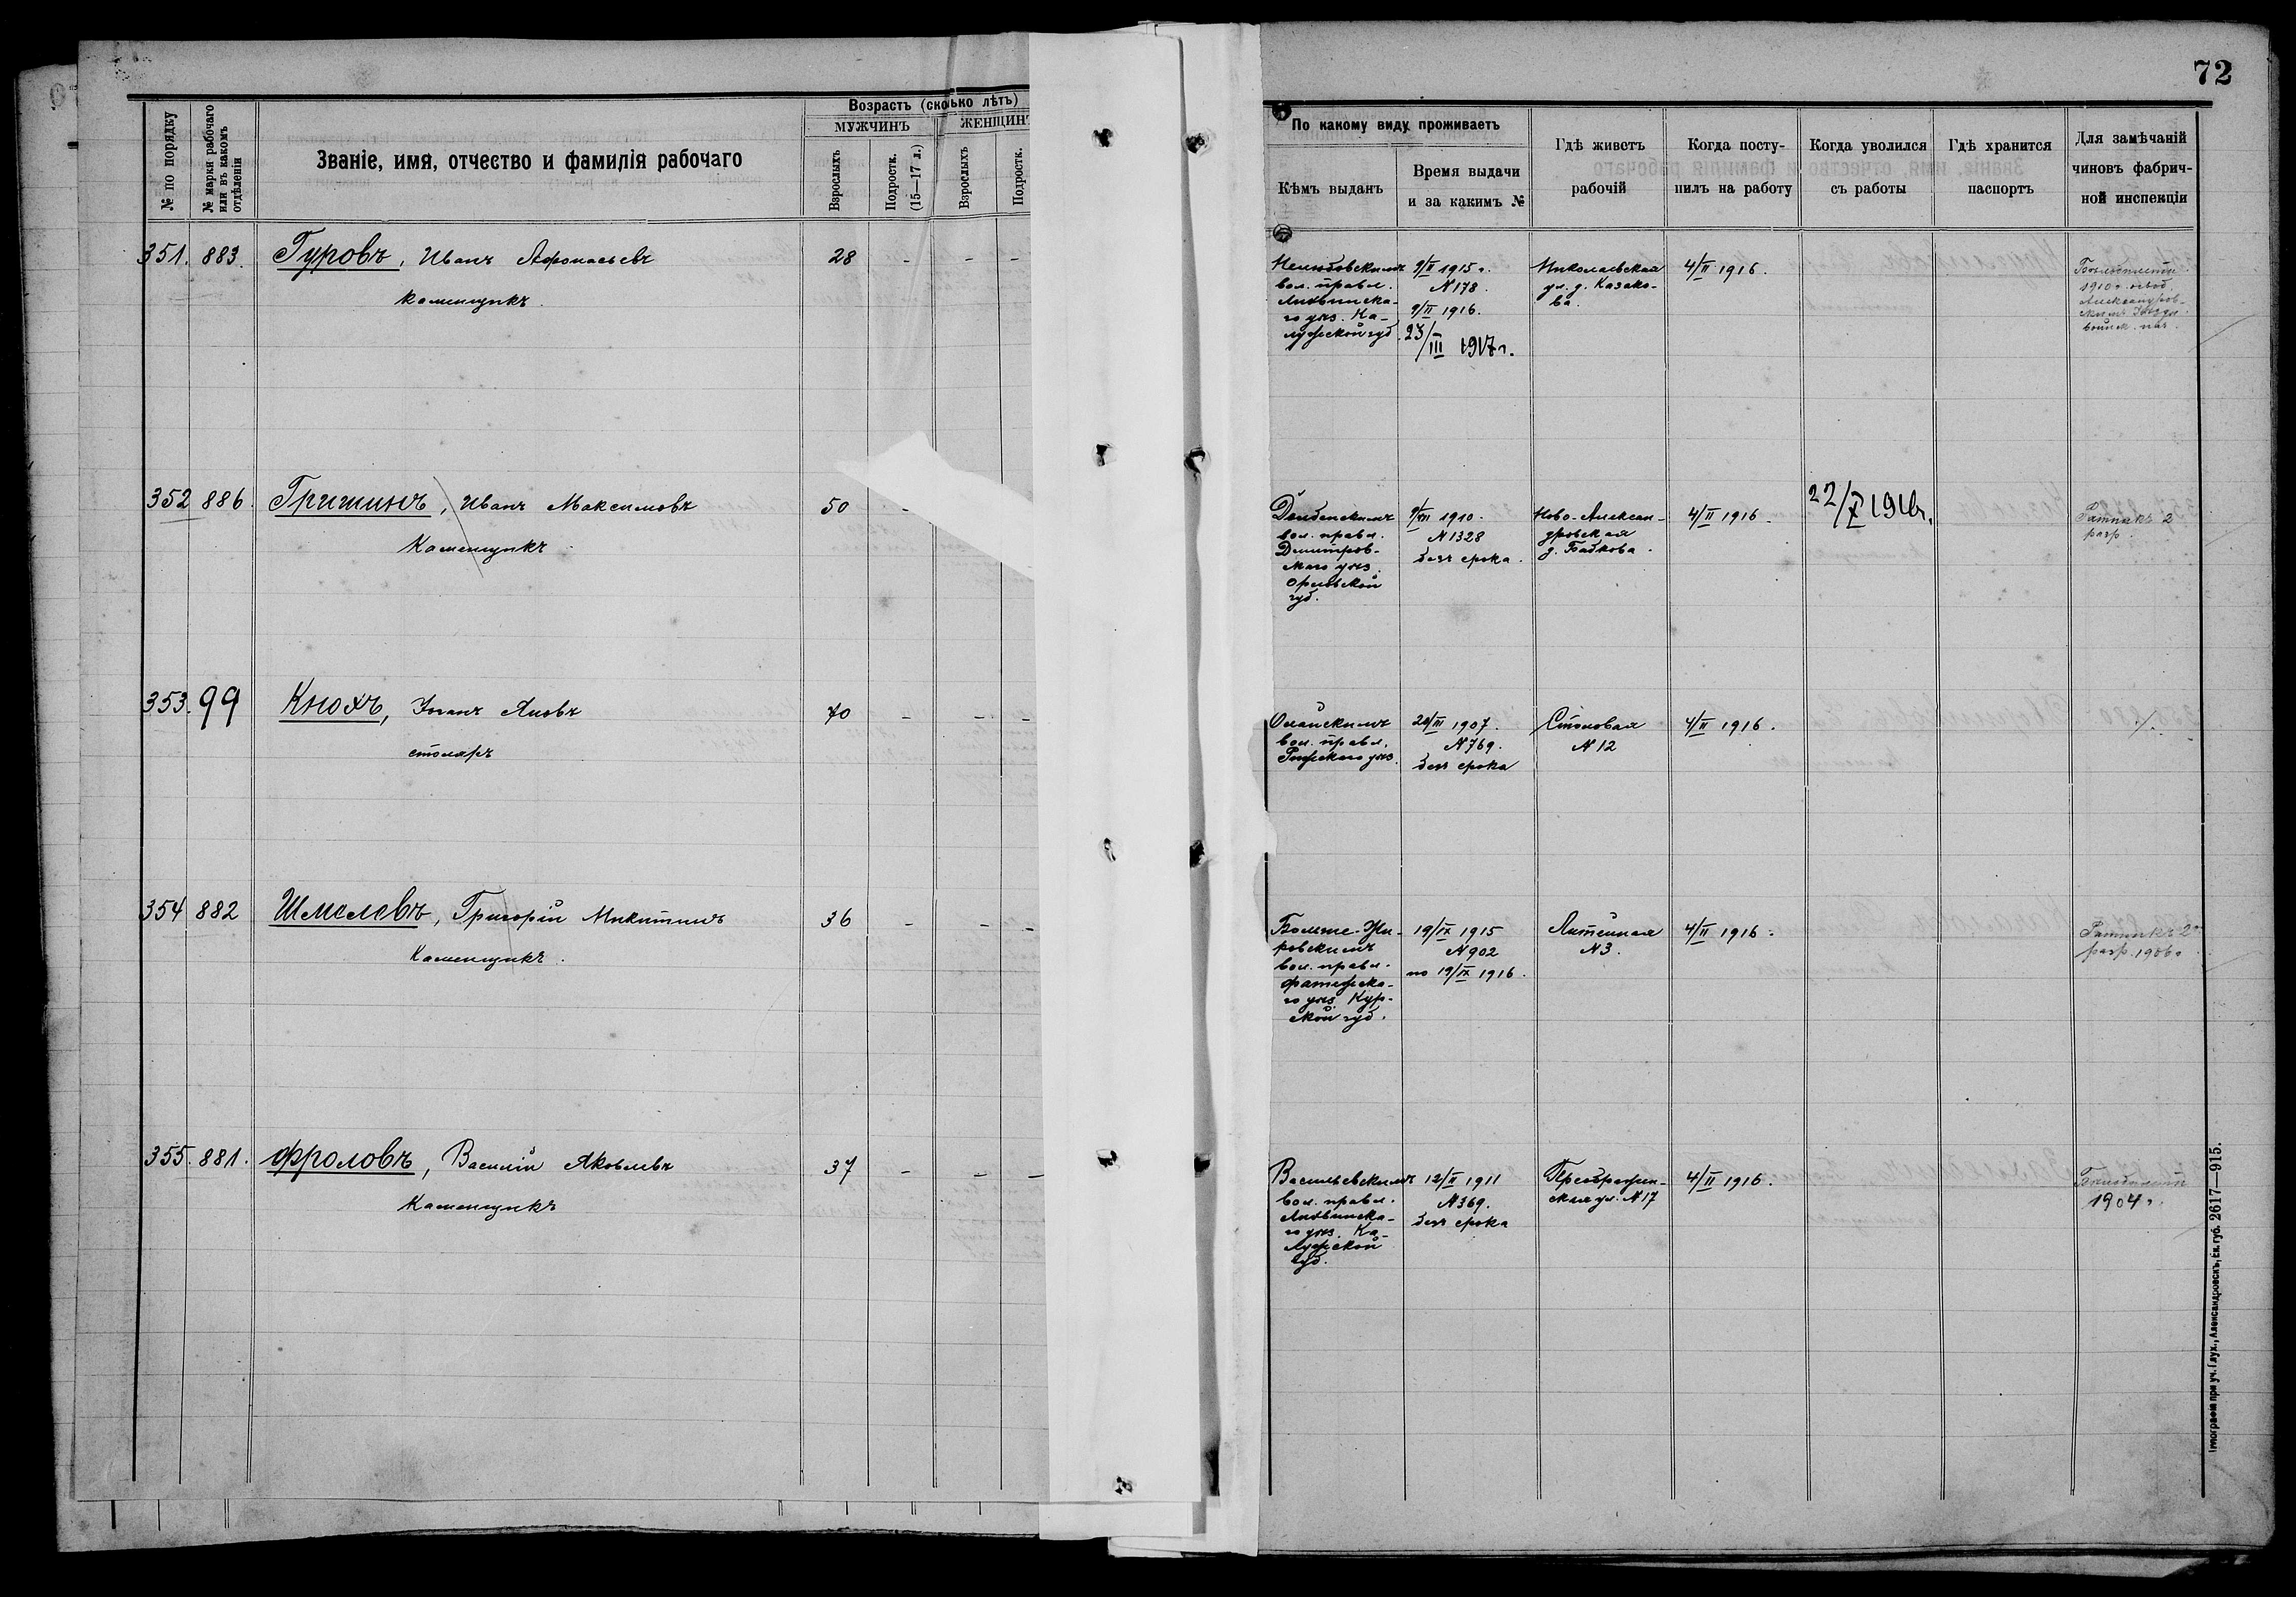 72
№ по порядку
№ марки рабочаго
или въ какомъ
отдѣленіи
Званіе, имя, отчество и фамилія рабочаго
Возрастъ (сколько лѣтъ)
МУЖЧИНЪ
ЖЕНЩИНЪ
Взрослыхъ
Подростк.
(15—17 л.)
Взрослыхъ
Подростк.
По какому виду проживаетъ
Кѣмъ выданъ
Время выдачи
и за какимъ №
Гдѣ живетъ
рабочій
Когда посту-
пилъ на работу
Когда уволился
съ работы
Гдѣ хранится
паспортъ
Для замѣчаній
чиновъ фабрич-
ной инспекціи
351. 883. Гуровъ, Иванъ Афонасьевъ 28 - - -
каменщикъ.
вол. правл.
Лихвинска-
го уѣз. Ка-
лужской губ.
9/II 1915 г.
N 178.
9/II 1916.
23/III 1917 г.
Николаевская
ул. д. Казако-
ва.
4/II 1916.
1910 г.
352 886. Гришинъ, Иванъ Максимовъ 50 -
Каменщикъ
вол. правл.
Димитров-
скаго уѣз.
Орловской
губ.
1910.
N 1328
безъ срока.
Ново-Алексан-
дровская
д. Бабкова.
4/II 1916.
22/X 1916 г.
Ратникъ 2
разр.
353. 99 Кнохъ, Іоганъ Яковъ 70 - - -
столяръ
Олайскимъ
вол. правл.
Рижскаго уѣз.
1907.
N 769.
безъ срока
Столовая
N 12
4/II 1916.
354 882 Шмелевъ, Григорій Никитинъ 36 - - -
Каменщикъ.
Больше-Жи-
ровскимъ
вол. правл.
Фатежска-
го уѣз. Кур-
ской губ.
19/IX 1915
N 902
по 19/IX 1916.
Литейная
N 3.
4/II 1916.
Ратникъ 2
разр. 1906 г.
355. 881. Фроловъ, Василій Яковлевъ 37 - - -
Каменщикъ
Васильевскимъ
вол. правл.
Лихвинска-
го уѣз. Ка-
лужской
губ.
12/II 1911
N 369.
безъ срока
Преображен-
ская ул. N 17
4/II 1916.
1904 г.
Типографія при уч. Глух., Александровскъ, Ек. губ. 2617—915.